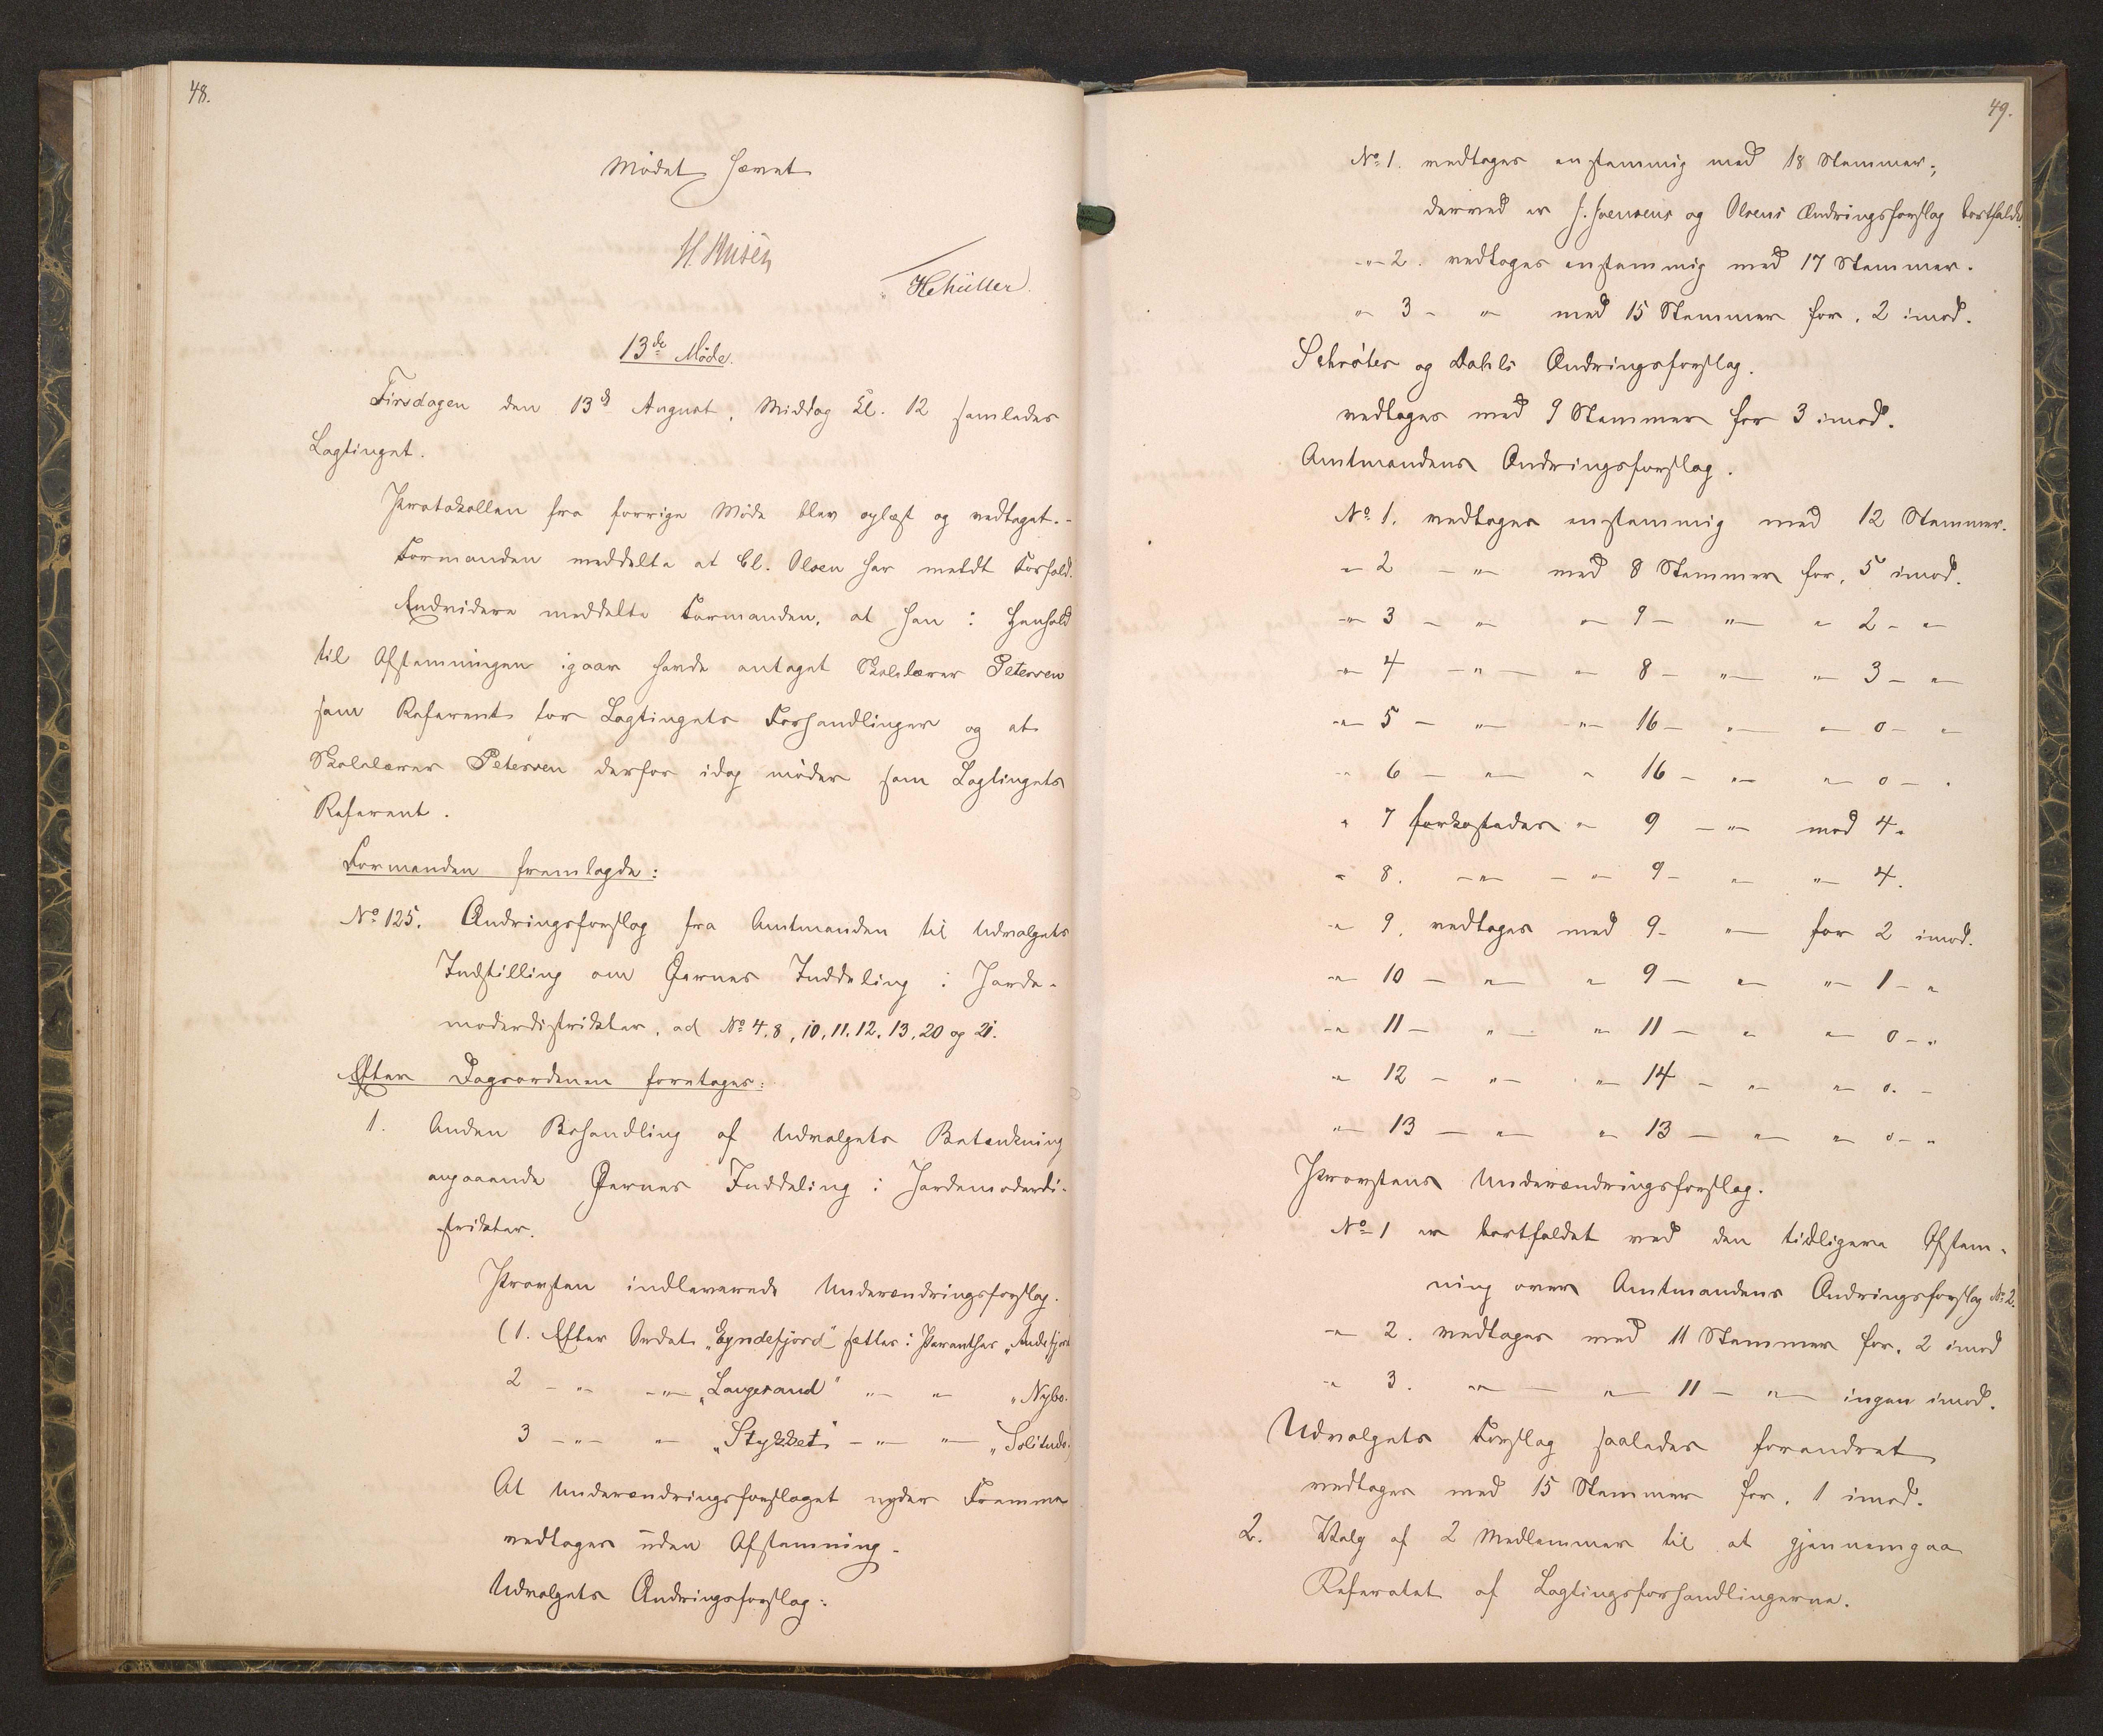 48.
Mødet hævet
HMüller.
13de Møde.
Tirsdagen den 13de August, Middag Kl. 12 samledes
Lagtinget.
Protokollen fra forrige Møde blev oplæst og vedtaget.-
Formanden meddelte at Cl. Olsen har meldt Forfald.
Endvidere meddelte Formanden, at han i Henhold
til Afstemningen igaar havde antaget Skolelærer Petersen
som Referent for Lagtingets Forhandlinger og at
Skolelærer Petersen derfor idag møder som Lagtingets
Referent.
Formanden fremlagde:
No 125. Ændringsforslag fra Amtmanden til Udvalgets
Indstilling om Øernes Inddeling i Jorde-
moderdistrikter, ad No 4, 8, 10, 11, 12, 13, 20 og 21.
Efter Dagsordenen foretoges:
1. Anden Behandling af Udvalgets Betænkning
angaaende Øernes Inddeling i Jordemoderdi-
strikter.
Provsten indleverede Underændringsforslag.
(1. Efter Ordet "Eyndefjord" sættes i Paranthes "Andefjord
2 - " - " - "Langesand" " - " "Nybo.
3 - " - " - "Stykket" - " - " - "Solitude)
At Underændringsforslaget nyder Fremme
vedtoges uden Afstemning.
Udvalgets Ændringsforslag:
49.
No 1. vedtoges enstemmig med 18 Stemmer;
derved er J. Joensens og Olsens Ændringsforslag bortfaldet.
- " - 2. vedtoges enstemmig med 17 Stemmer.
" - 3 - " - med 15 Stemmer for, 2 imod.
Schrøter og Dahls Ændringsforslag.
vedtoges med 9 Stemmer for 3 imod.
Amtmandens Ændringsforslag.
No 1. vedtoges enstemmig med 12 Stemmer.
- " 2 - " - med 8 Stemmer for, 5 imod.
- " - 3 - " - " - 9 - " - " 2 - "
- " - 4 - " - " - 8 - " - " - 3 - "
- " - 5 - " - - " - 16 - " - " - 0 - "
- " 6 - " - " 16 - " - " - 0 - "
" 7 forkastedes " - 9 - " - mod 4 "
- " 8. - " - - " - 9 - " - " - 4.
- " 9. vedtoges med 9 - " - for 2 imod.
- " 10 - " - " 9 - " - " - 1 - "
- " 11 - " - " - 11 - " - " - 0 - "
- " 12 - " - " - 14 - " - " - 0. -
" - 13 - " - " - 13 - " - " - 0 - "
Provstens Underændringsforslag.
No 1 er bortfaldet ved den tidligere Afstem-
ning over Amtmandens Ændringsforslag No 2.
- " 2. vedtoges med 11 Stemmer for, 2 imod
- " 3. " - - " - 11 - " - ingen imod.
Udvalgets Forslag saaledes forandret
vedtoges med 15 Stemmer for, 1 imod.
2. Valg af 2 Medlemmer til at gjennemgaa
Referatet af Lagtingsforhandlingerne.